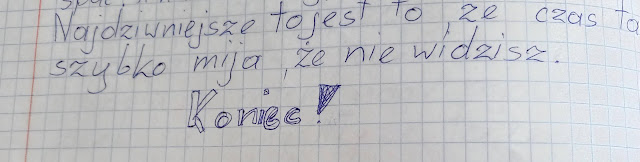 spać.
Najdziwniejsze to jest to, że czas ta
szybko mija, że nie widzisz.
Koniec!